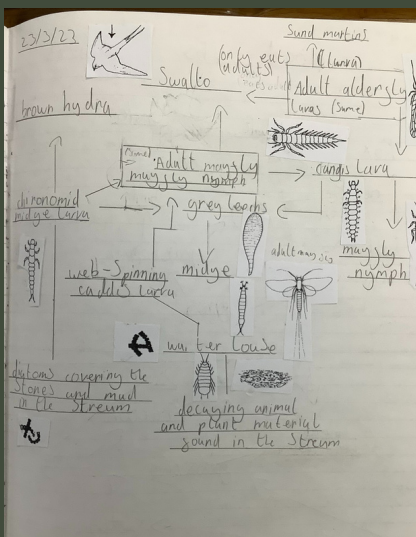 23/3/23
Sand martins
(only eats
adults)
(larva)
Swallo
Adult alderfly
larva (same)
brown hydra
(same)
Adult mayfly
mayfly nymph
caddis larva
chironomid
midge larva
grey leechs
web-spinning
caddis larva
midge
adult mayfly
mayfly
nymph
water louse
diatoms covering the
stones and mud
in the stream
decaying animal
and plant material
found in the Stream